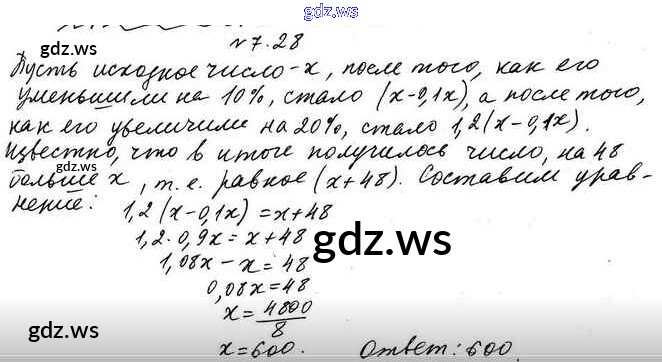 gdz.ws
gdz.ws
gdz.ws
№7.28
Пусть исходное число - x, после того, как его
уменьшили на 10%, стало (x-0,1x), а после того,
как его увеличили на 20%, стало 1,2(x-0,1x).
Известно, что в итоге получилось число, на 48
gdz.ws
больше x, т.е. равное (x+48). Составим урав-
нение:
1,2(x-0,1x)=x+48
1,2·0,9x=x+48
gdz.ws
1,08x-x=48
0,08x=48
x=4800/8
gdz.ws
gdz.ws
x=600. Ответ: 600.